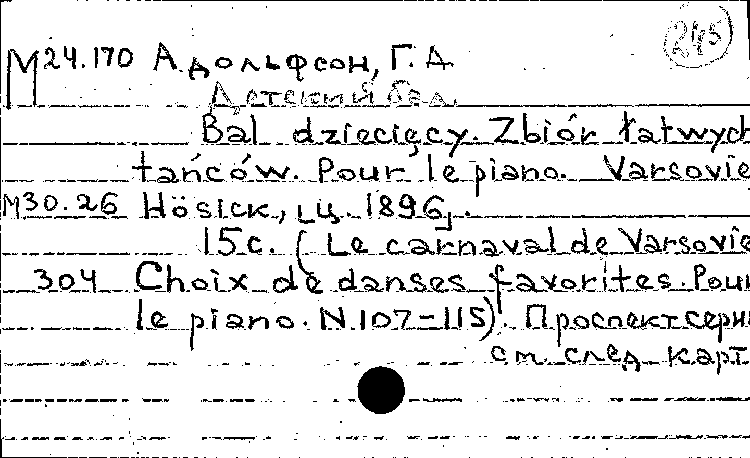 245
M24.170 Адольфсон, Г. А.
Детский бал.
Bal dziecięcy. Zbiór łatwych
tańców. Pour le piano. Varsovie
M30.26 Hösick, ц. 1896.
15 с. (Le carnaval de Varsovie
304 Choix de danses favorites. Pour
le piano. N. 107-115). Проспект серии
см. след. карт